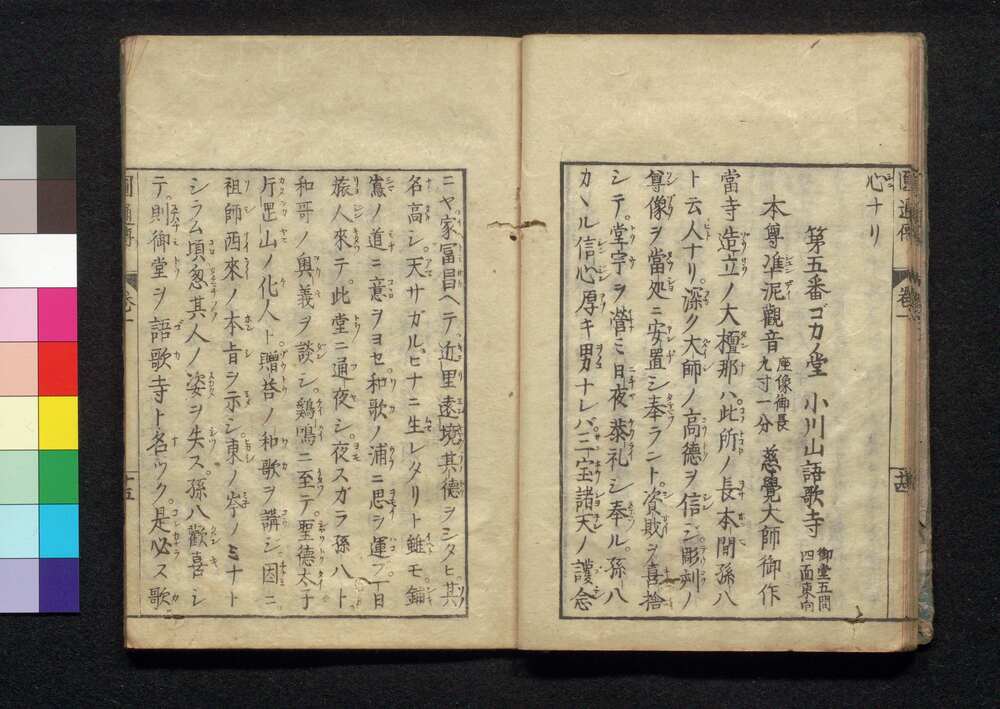 心ナリ
第五番ゴカノ堂 小川山語歌寺 御堂五間四面東向
本尊準泥觀音 座像御長九寸一分 慈覺大師御作
當寺造立ノ大檀那ハ此所ノ長本間孫八
ト云人ナリ深ク大師ノ高德ヲ信ジ彫刻ノ
尊像ヲ當処ニ安置シ奉ラント資財ヲ喜捨
シテ堂宇ヲ營ミ日夜恭礼シ奉ル孫八
カヽル信心厚キ男ナレバ三宝諸天ノ護念
ニヤ家冨昌ヘテ近里遠境其德ヲシタヒ其
名高シ天サガルヒナニ生レタリト雖モ鋪
嶌ノ道ニ意ヲヨセ和歌ノ浦ニ思ヲ運フ一日
旅人來テ此堂ニ通夜シ夜スガラ孫八ト
和哥ノ奥義ヲ談シ鷄鳴ニ至テ聖德太子
片岡山ノ化人ト贈答ノ和歌ヲ講ジ因ニ
祖師西來ノ本旨ヲ示シ東ノ岑ノミナト
シラム頃忽其人ノ姿ヲ失ス孫八歡喜シ
テ則御堂ヲ語歌寺ト名ツク是必ス歌
圓通傳 卷一 十四
圓通傳 卷一 十五